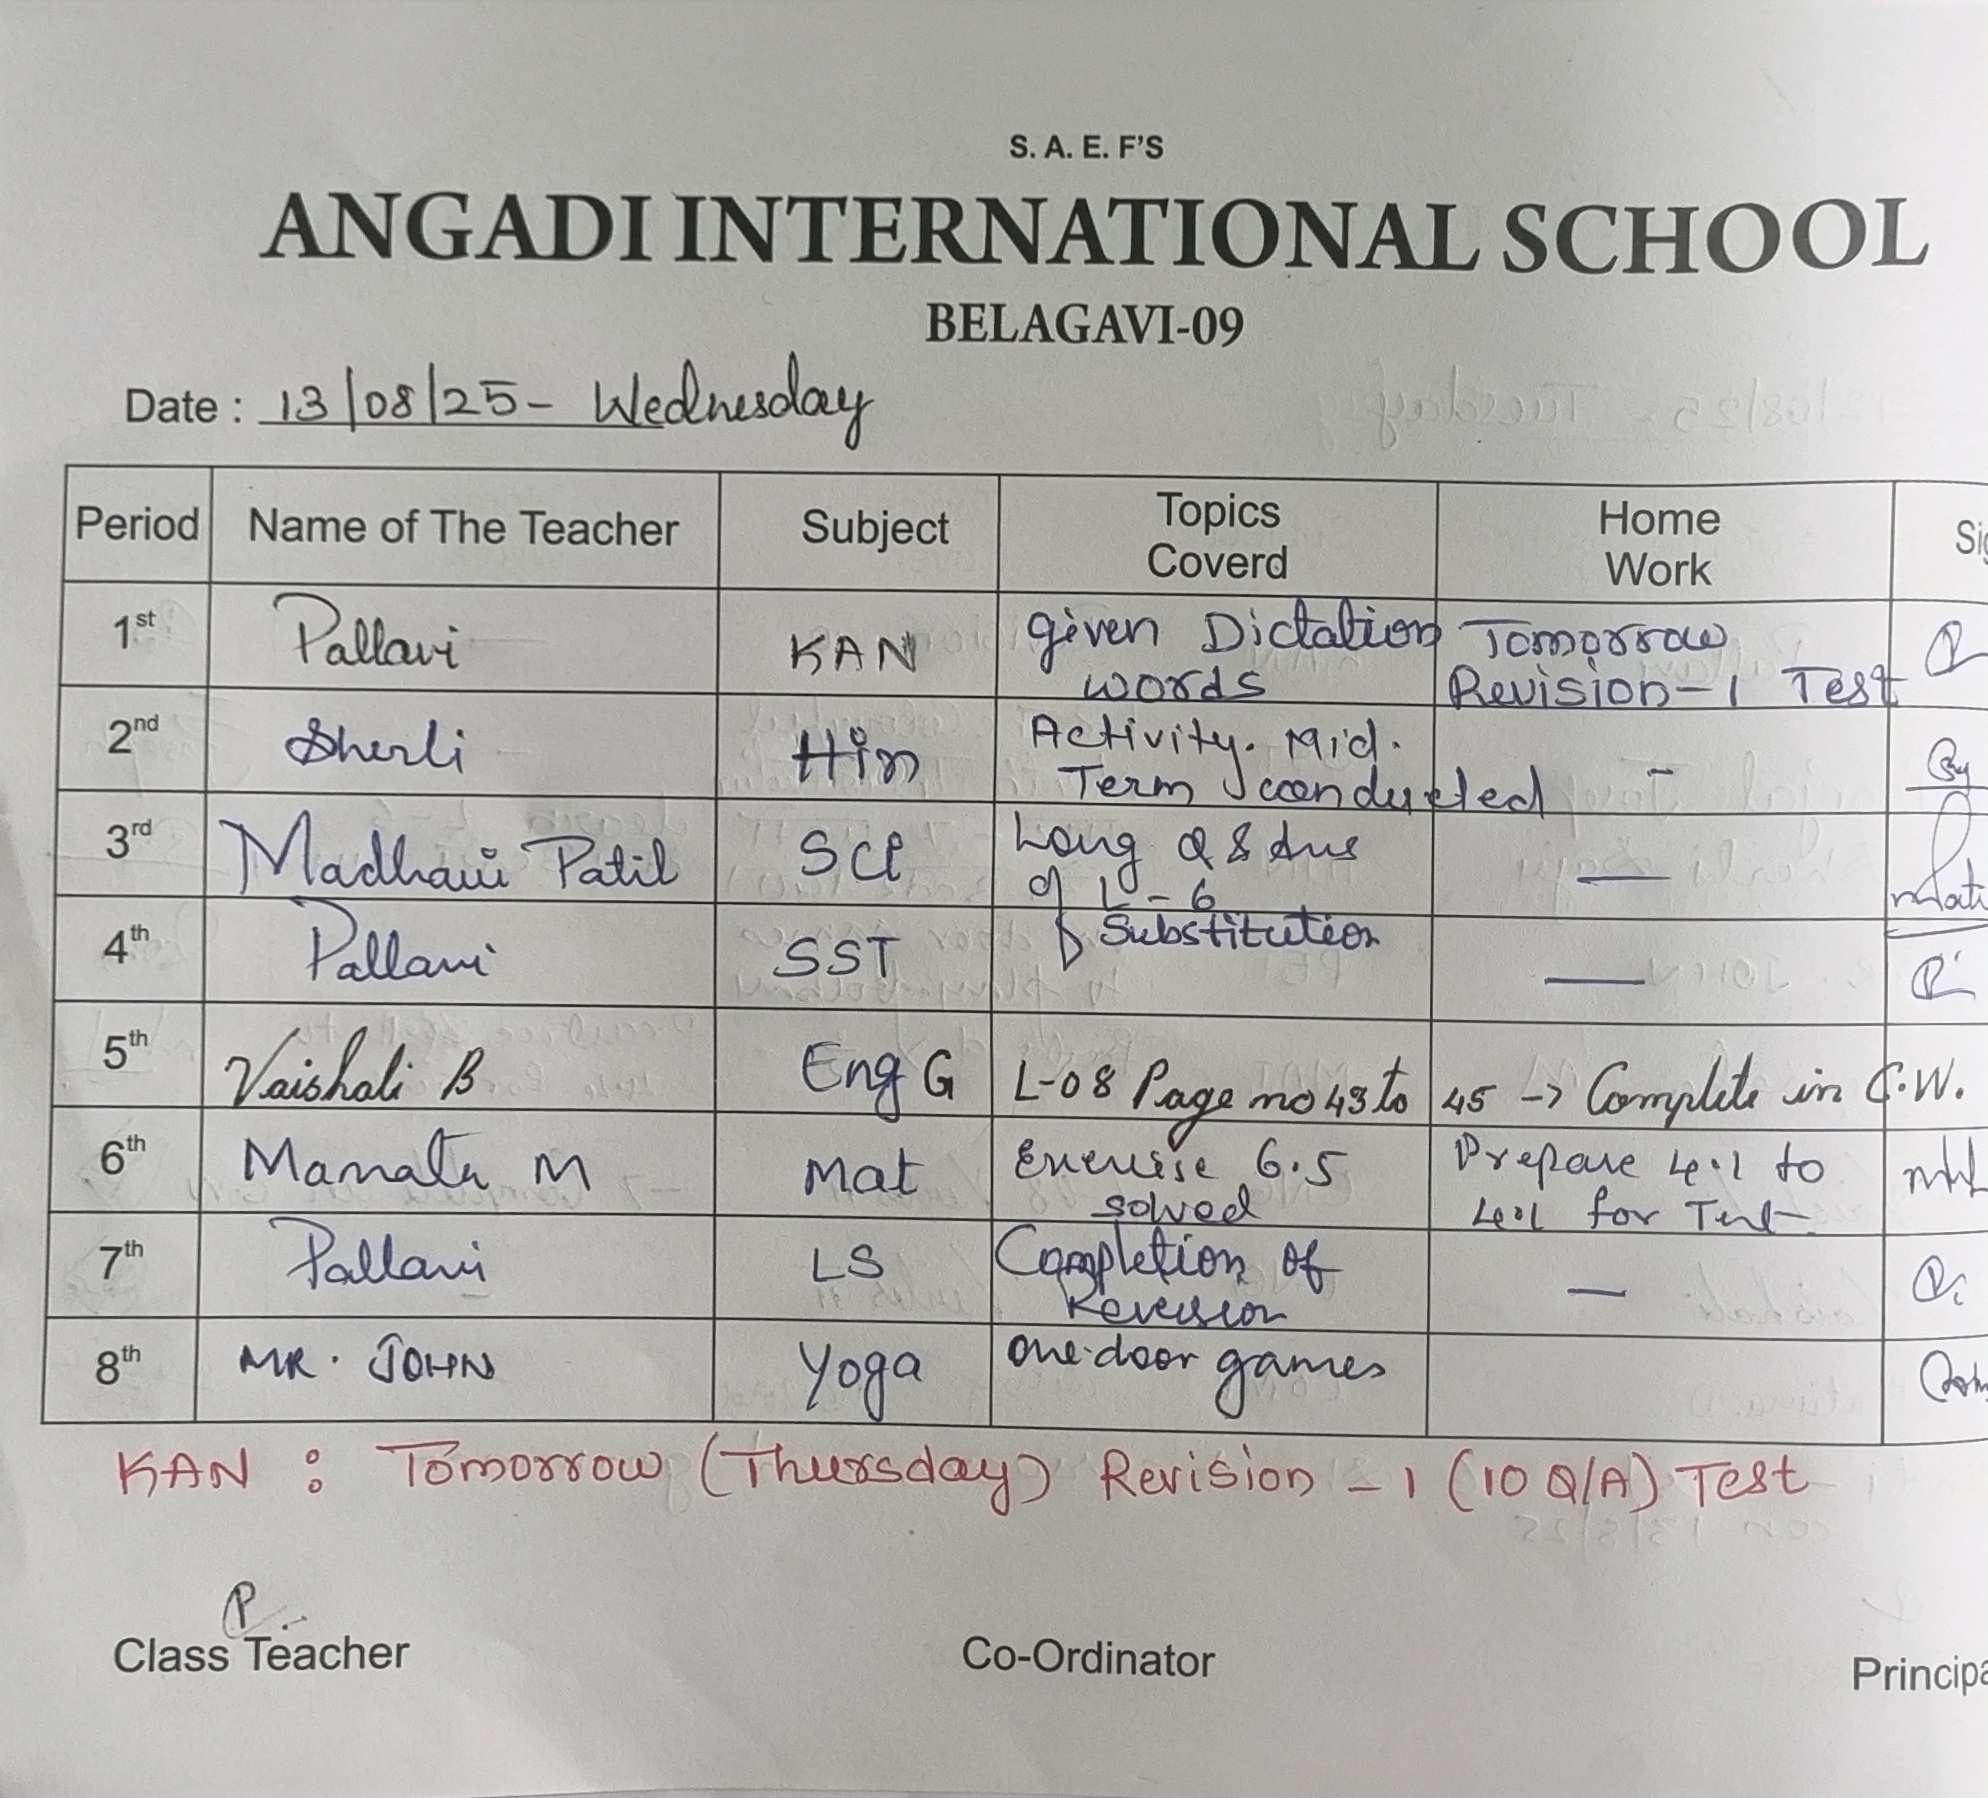 S. A. E. F'S
ANGADI INTERNATIONAL SCHOOL
BELAGAVI-09
Date : 13/08/25- Wednesday
Period Name of The Teacher Subject Topics Coverd Home Work
1st Pallavi KAN given Dictation words Tomorrow Revision-1 Test
2nd Sherli Hin Activity. Mid. Term conducted -
3rd Madhavi Patil SCI Long Q & Ans of L-6 —
4th Pallavi SST Substitution —
5th Vaishali B Eng G L-08 Page no 43 to 45 -> Complete in C.W.
6th Mamata M Mat Exercise 6.5 solved Prepare 4.1 to for Test
7th Pallavi LS Completion of Revision —
8th MR. JOHN Yoga One-door games
KAN : Tomorrow (Thursday) Revision - 1 (10 Q/A) Test
P
Class Teacher Co-Ordinator